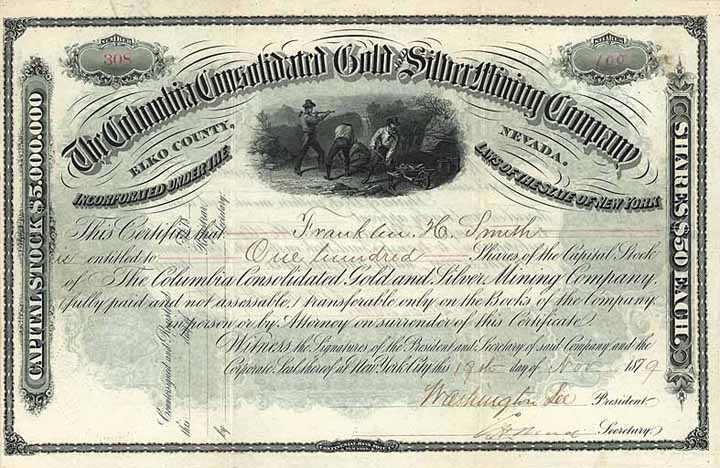 NUMBER
308
SHARES
100
The Columbia Consolidated Gold and Silver Mining Company
ELKO COUNTY, NEVADA.
INCORPORATED UNDER THE LAWS OF THE STATE OF NEW YORK
CAPITAL STOCK $5,000,000
SHARES $50 EACH
This Certifies that Franklin H. Smith
is entitled to One hundred Shares of the Capital Stock
of The Columbia Consolidated Gold and Silver Mining Company,
(fully paid and not assessable,) transferable only on the Books of the Company
in person or by Attorney on surrender of this Certificate
Witness the Signatures of the President and Secretary of said Company and the
Corporate Seal thereof at New York City this 19th day of Nov 1879
Washington Lee President
Secretary.
Countersigned and Registered
this
by
Registrar
CONTINENTAL BANK NOTE CO
NEW YORK